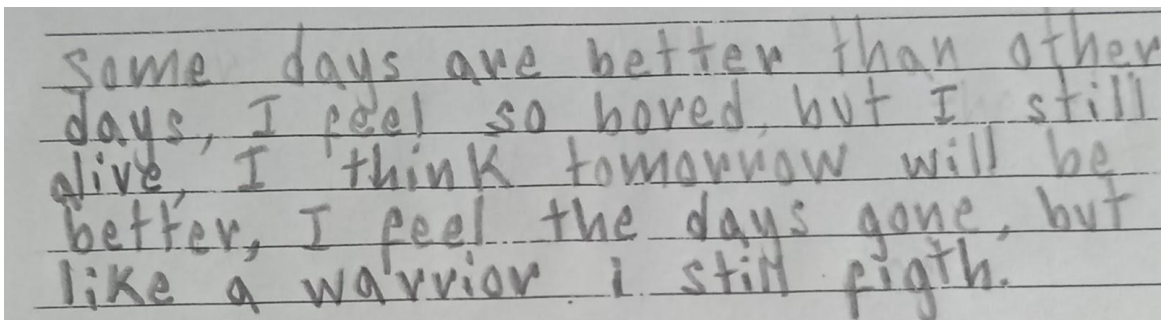 Some days are better than other
days, I feel so bored, but I still
alive, I think tomorrow will be
better, I feel the days gone, but
like a warrior i still figth.